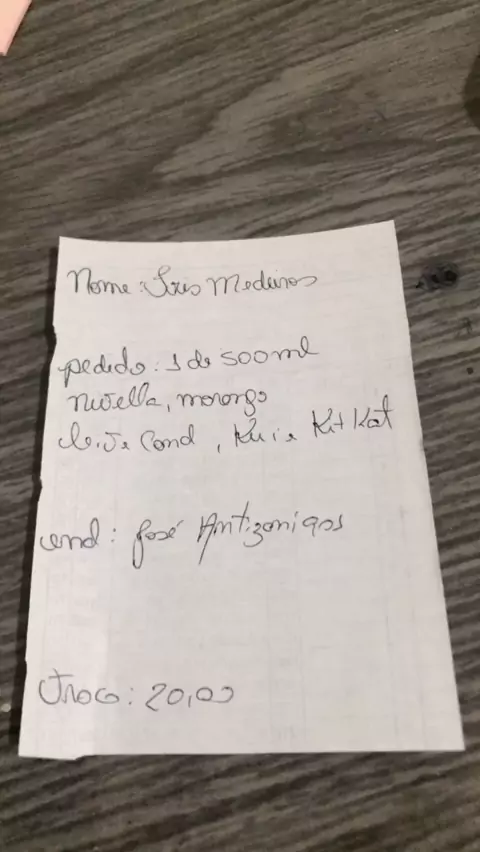 Nome: Iris Medeiros
pedido: 1 de 500ml
Nutella, morango
leite Cond, Kiwi e Kit Kat
end: José
Troco: 20,00